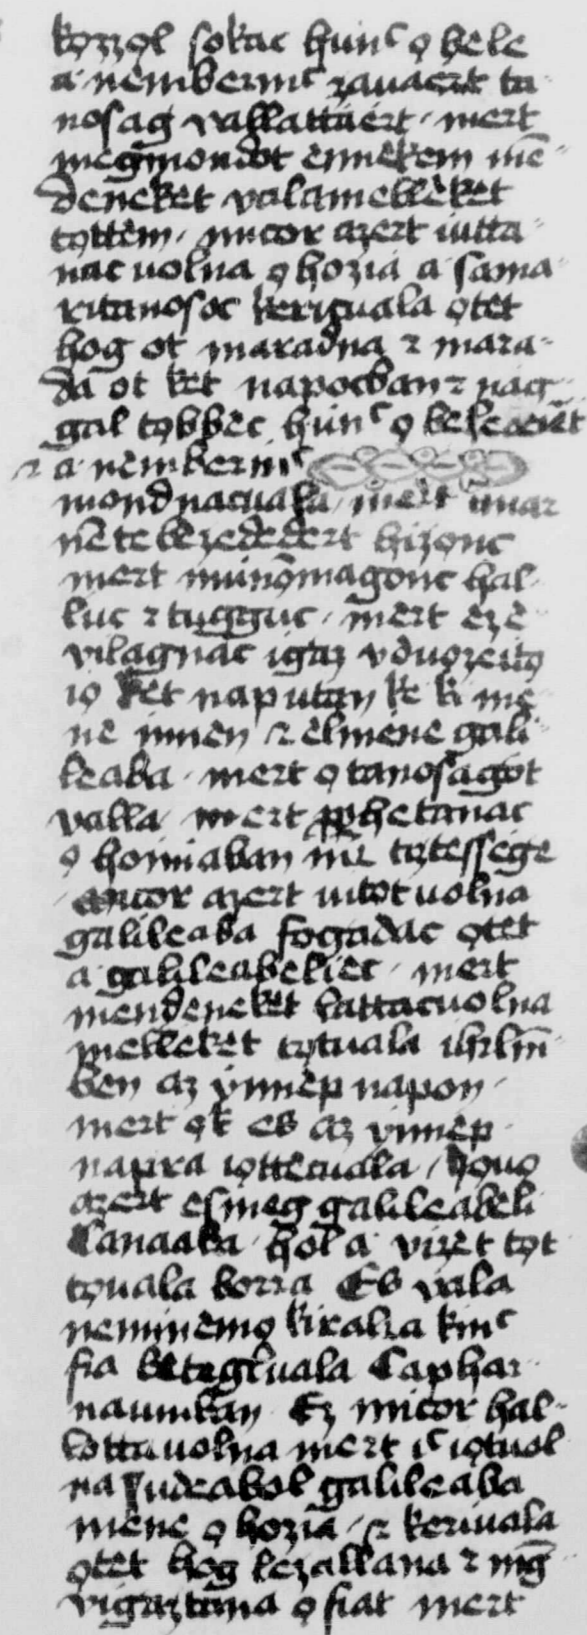 kozzol sokac hunc o bele
a nembernc zauaert ta
nosag vallattuert · mert
megmondot ennekem mē
deneket valamelleket
tottem · micor azert iutta
nac uolna o hozia a sama
ritanosoc keriguala otet
hog ot maradna ⁊ mara
da ot ket napocban ⁊ nag
gal tobbec hunc o beleeret
⁊ a nembernc
mondnacuala · mert imar
nē te bezededert hizonc
mert minōmagonc hal
luc ⁊ tugguc · mert eze
vilagnac igaz vduozeito
io ket nap utan ke ki me
ne innen ⁊ elmene gali
leaba · mert o tanosagot
valla mert pphetanac
o honniaban nīc tiztessege
micor azert iutot uolna
galileaba fogadac otet
a galileabeliec · mert
mendeneket lattacuolna
melleket totuala ihrlm̄
ben az ynnep napon ·
mert ok es az ynnep
napra iottecuala · Iouo
azert esmeg galileabeli
Canaaba hol a vizet tot
touala borra Es vala
neminemo kiralia kinc
fia betegluala Caphar
naumban Ez micor hal
lotta uolna mert ic iotuol
na Iudeabol galileaba
mene o hozia · ⁊ keriuala
otet hog lezallana ⁊ mḡ
vigaztana o fiat mert